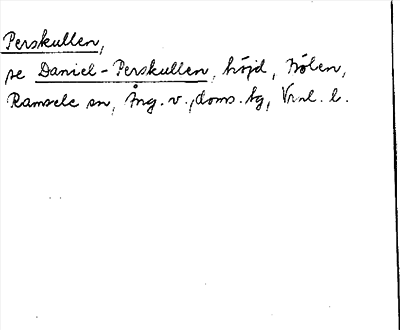 Perskullen,
se Daniel-Perskullen, höjd, Krölen,
Ramsele sn, Ång. v., doms. tg, Vrnl. l.